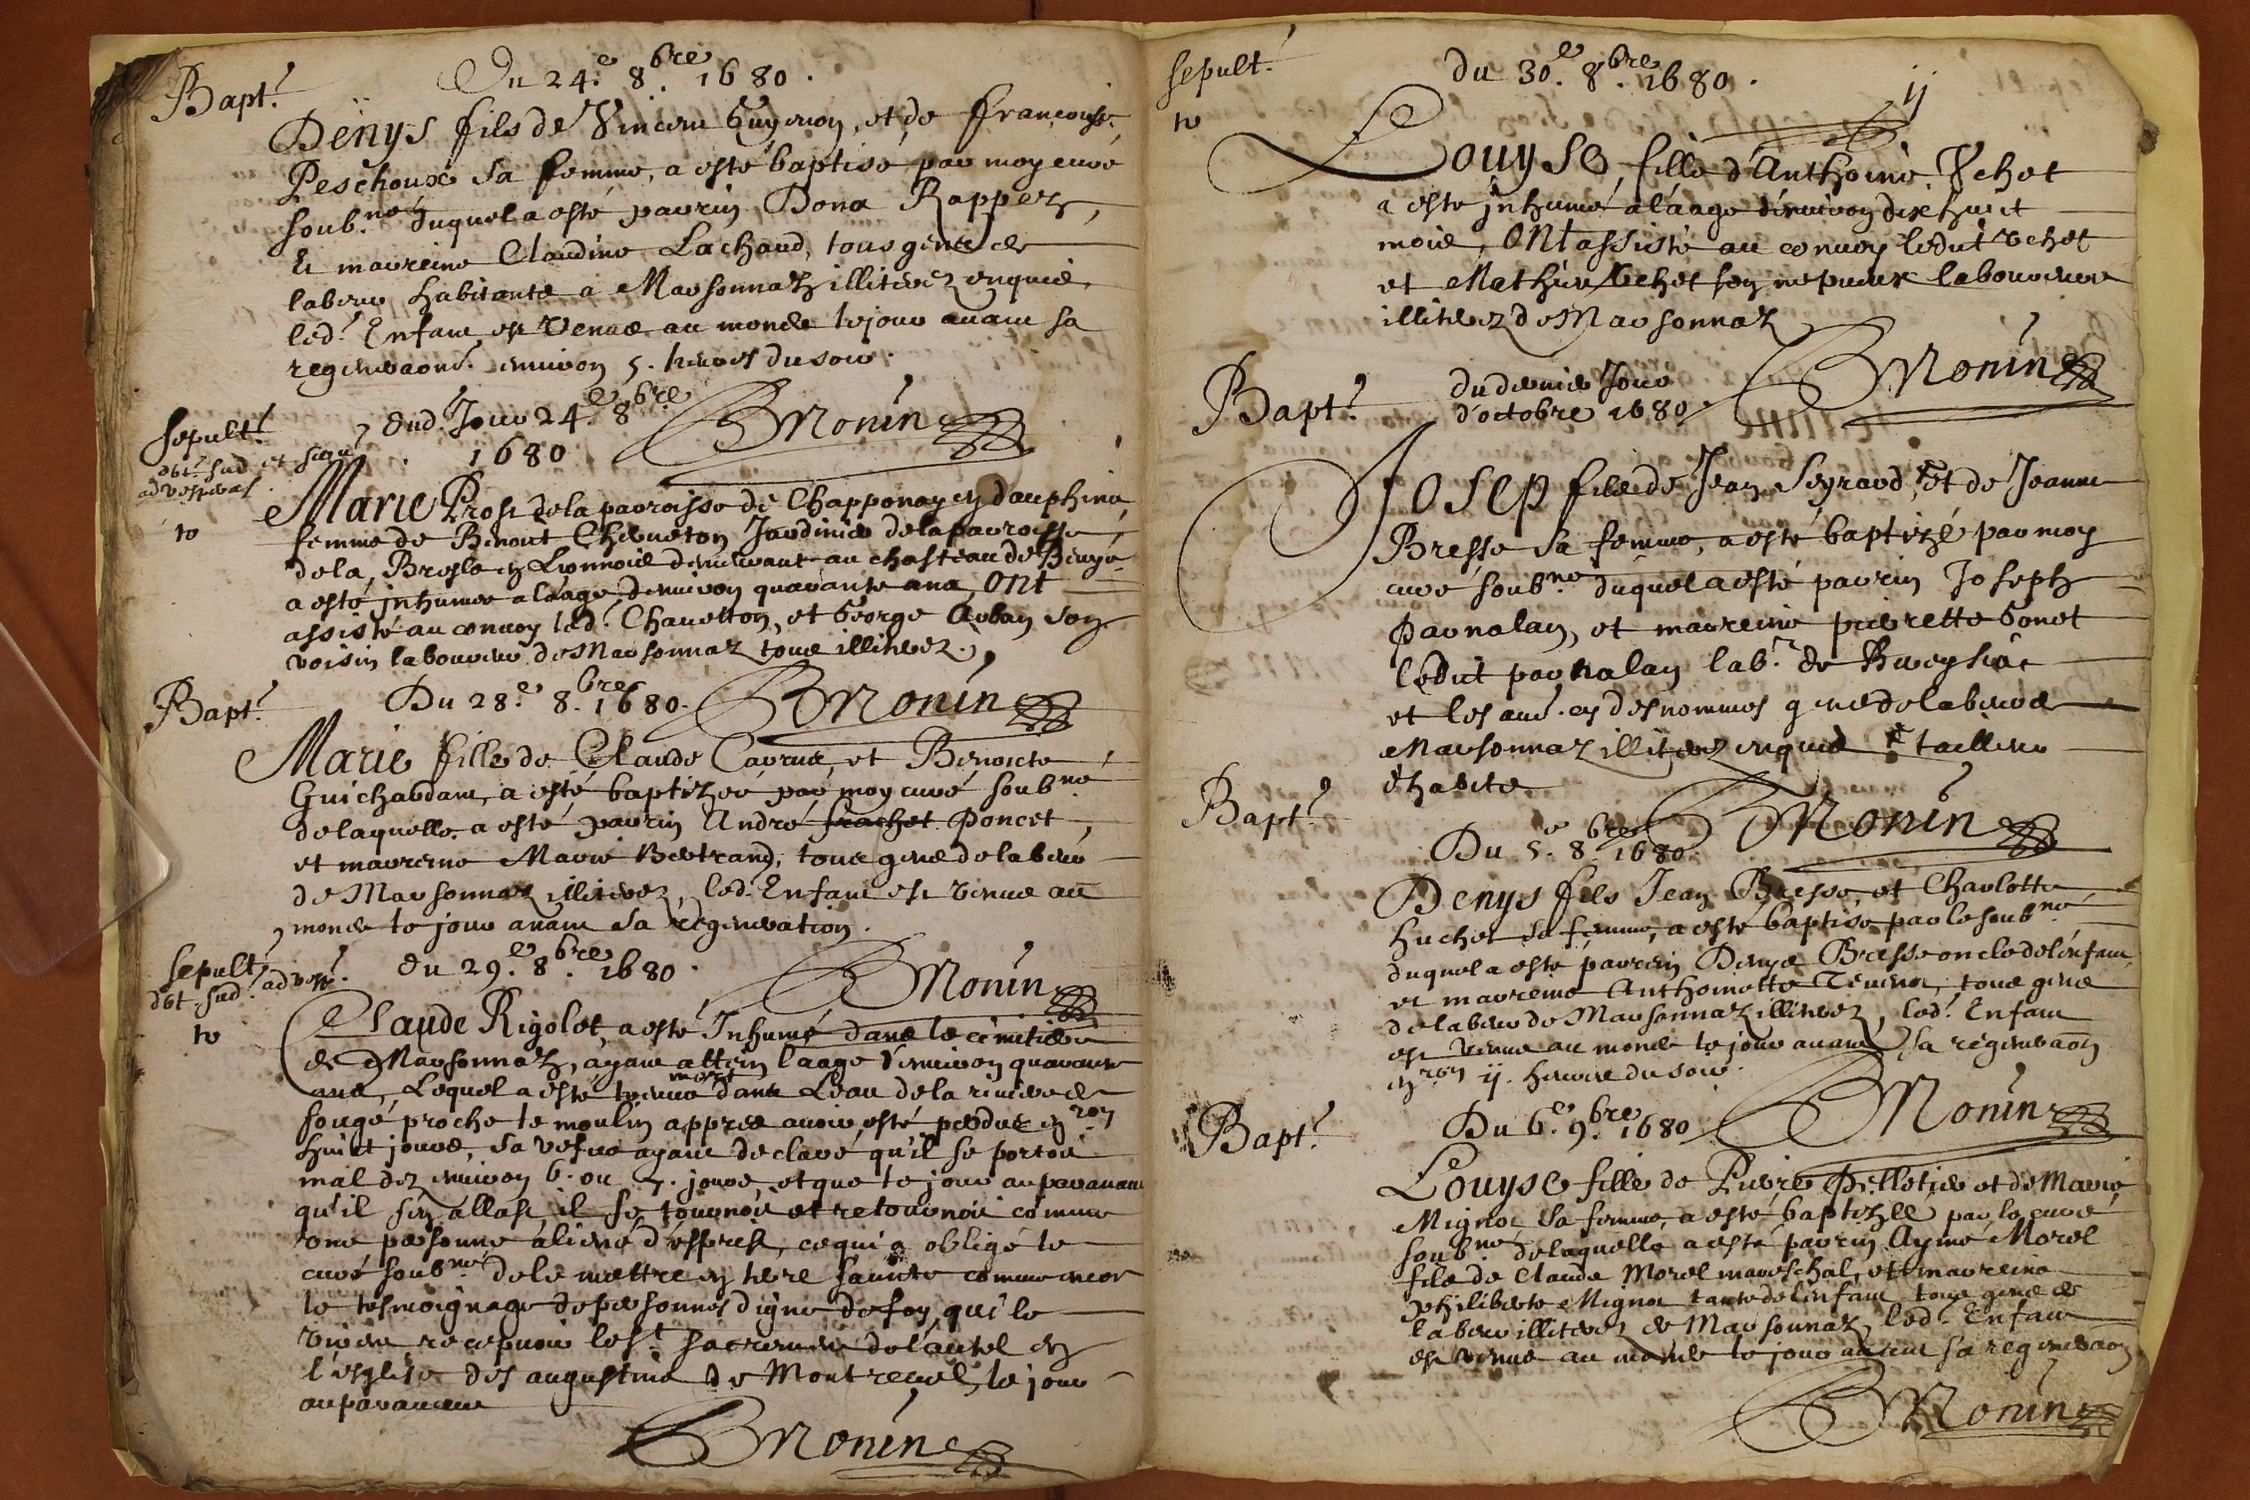 Bapt.
Du 24.e 8.bre 1680.
Denys fils de Vincent Guyenon, et de Françoise
Peschoux sa femme, a esté baptisé par moy curé
soub.né duquel a esté parrin Dona Rappet,
et marreine Claudine Lachaud, tous gents de
labeur habitants a Marsonnaz illiterez enquis,
led. Enfant est venus au monde le jour avant sa
regeneraon. environ 5. heures du soir.
Sepult.
dud. Jour 24.e 8.bre
1680
Bmonin
to
Marie Prost de la parroisse de Chapponay en dauphiné,
femme de Benoit Chevreton Jardinier de la parroisse
de la, Bresle en Lionnois demeurant au chasteau de
a esté inhumée a l'aage d'environ quarante ans, ont
assisté au convoy led. Chavetton, et George Auban son
voisin laboureur de Marsonnaz tous illiterez.
Bapt.
Du 28.e 8.bre 1680.
Bmonin
Marie fille de Claude et Benoicte
Guichardant, a esté baptizée par moy curé soub.né
de laquelle a esté parrin André frachet Poncet,
et marreine Marie Bertrand, tous gens de labeur
de Marsonnaz illiterez, led. Enfant est venue au
monde le jour avant sa regeneration.
Sepult.
du 29.e 8.bre 1680.
Bmonin
to
Claude Rigolet, a esté Inhumé dans le cimitiere
de Marsonnaz, ayant attein l'aage d'environ quarante
ans, Lequel a esté trouvé mort dans L'eau de la riviere de
souge proche le moulin appres avoir esté perdu en.ron
huict jours, sa vefve ayant declaré qu'il se portoit
mal dez environ 6. ou 7. jours, et que le jour auparavant
qu'il s'en allast, il se tournoit et retournoit comme
une personne aliené d'esprit, ce qui a obligé le
curé soub.né de le mettre en terre sainte comme encor
le tesmoignage de personnes digne de foy, qui le
virent recepvoir le S.t Sacrement de l'autel en
l'esglise des augustins de Montrevel, le jour
auparavant
Bmonin
Sepult.
du 30.e 8.bre 1680.
to
ij
Louyse, fille d'Anthoine Vchet
a esté inhumé a l'aage d'environ dix huict
mois, Ont assisté au convoy ledit Vchet
et Mathieu Vchet son nepveux laboureurs
illiterez de Marsonnaz
Bmonin
Bapt.
du dernier Jour
d'octobre 1680
Josep fils de Jean Seyraud, Et de Jeanne
Bresse sa femme, a esté baptizé par moy
curé soub.né duquel a esté parrin Joseph
Parnalan, et marreine pierrette Gonet
ledit parnalan lab.r de
et les au.s cy desnommés gens de labeurs de
Marsonnaz illiterez enquis
Bmonin
Bapt.
Du 5.e 8.bre 1680.
Denys fils Jean Bresse, et Charlotte
Huchet sa femme, a esté baptisé par le soub.né
duquel a esté parrin Denys Bresse oncle de l'enfant,
et marreine Anthoinette tous gens
de labeur de Marsonnaz illiterez, led. Enfant
est venue au monde le jour avant sa regeneraon
en.ron ij. heures du soir.
Bmonin
Bapt.
Du 6.e 9.bre 1680
Louyse fille de Pierre Pelletier et de Marie
Mignot sa femme, a esté baptizée par le curé
soub.né de laquelle a esté parrin Aymé Morel
fils de Claude Morel mareschal, et marreine
Philiberte Mignot tante de l'enfant tous gens de
labeur illiterez de Marsonnaz, led. Enfant
est venue au monde le jour avant sa regeneraon
Bmonin